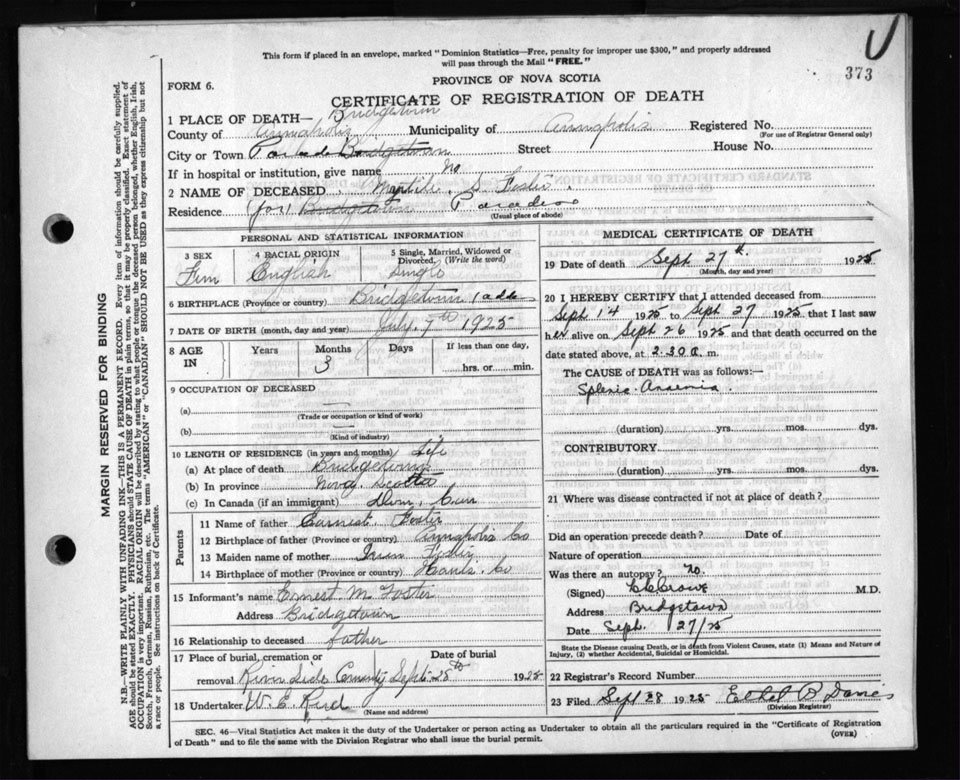 This form if placed in an envelope, marked "Dominion Statistics—Free, penalty for improper use $300," and properly addressed
will pass through the Mail "FREE."
373
FORM 6.
PROVINCE OF NOVA SCOTIA
CERTIFICATE OF REGISTRATION OF DEATH
1 PLACE OF DEATH— Bridgetown
County of Annapolis Municipality of Annapolis Registered No.
(For use of Registrar General only)
City or Town Bridgetown Street House No.
If in hospital or institution, give name No
2 NAME OF DECEASED S Foster
Residence (for) Bridgetown Paradise
(Usual place of abode)
PERSONAL AND STATISTICAL INFORMATION
3 SEX 4 RACIAL ORIGIN 5 Single, Married, Widowed or Divorced. (Write the word)
Fem English Single
6 BIRTHPLACE (Province or country) Bridgetown
7 DATE OF BIRTH (month, day and year) July 7th 1925
8 AGE IN Years Months Days If less than one day,
3 hrs. or min.
9 OCCUPATION OF DECEASED
(a)
(Trade or occupation or kind of work)
(b)
(Kind of industry)
10 LENGTH OF RESIDENCE (in years and months) Life
(a) At place of death Bridgetown
(b) In province Nova Scotia
(c) In Canada (if an immigrant) Dom. Can
Parents
11 Name of father Earnest Foster
12 Birthplace of father (Province or country) Annapolis Co
13 Maiden name of mother
14 Birthplace of mother (Province or country) Hants. Co
15 Informant's name Ernest M Foster
Address Bridgetown
16 Relationship to deceased father
17 Place of burial, cremation or removal Date of burial
Sept. 28th 1925
18 Undertaker W. E. Reed
(Name and address)
MEDICAL CERTIFICATE OF DEATH
19 Date of death Sept 27th. 1925
(Month, day and year)
20 I HEREBY CERTIFY that I attended deceased from
Sept 14 1925 to Sept 27 1925 that I last saw
her alive on Sept 26 1925 and that death occurred on the
date stated above, at 2.30 a. m.
The CAUSE of DEATH was as follows:—
Splenic Anaemia.
(duration) yrs. mos. dys.
CONTRIBUTORY
(duration) yrs. mos. dys.
21 Where was disease contracted if not at place of death?
Did an operation precede death? Date of
Nature of operation
Was there an autopsy? No.
(Signed) M.D.
Address Bridgetown
Date Sept. 27/25
State the Disease causing Death, or in death from Violent Causes, state (1) Means and Nature of
Injury, (2) whether Accidental, Suicidal or Homicidal.
22 Registrar's Record Number
23 Filed Sept 28 1925 Ethel B Davies
(Division Registrar)
SEC. 46—Vital Statistics Act makes it the duty of the Undertaker or person acting as Undertaker to obtain all the particulars required in the "Certificate of Registration
of Death" and to file the same with the Division Registrar who shall issue the burial permit.
(OVER)
MARGIN RESERVED FOR BINDING
N.B.—WRITE PLAINLY WITH UNFADING INK—THIS IS A PERMANENT RECORD. Every item of information should be carefully supplied.
AGE should be stated EXACTLY. PHYSICIANS should STATE CAUSE OF DEATH in plain terms, so that it may be properly classified. Exact statement of
OCCUPATION is very important. RACIAL ORIGIN will be described by stating to what people or tongue the deceased person belonged, whether English, Irish,
Scotch, French, German, Russian, Ruthenian, etc. The terms "AMERICAN" or "CANADIAN" SHOULD NOT BE USED as they express citizenship but not
a race or people. See instructions on back of Certificate.